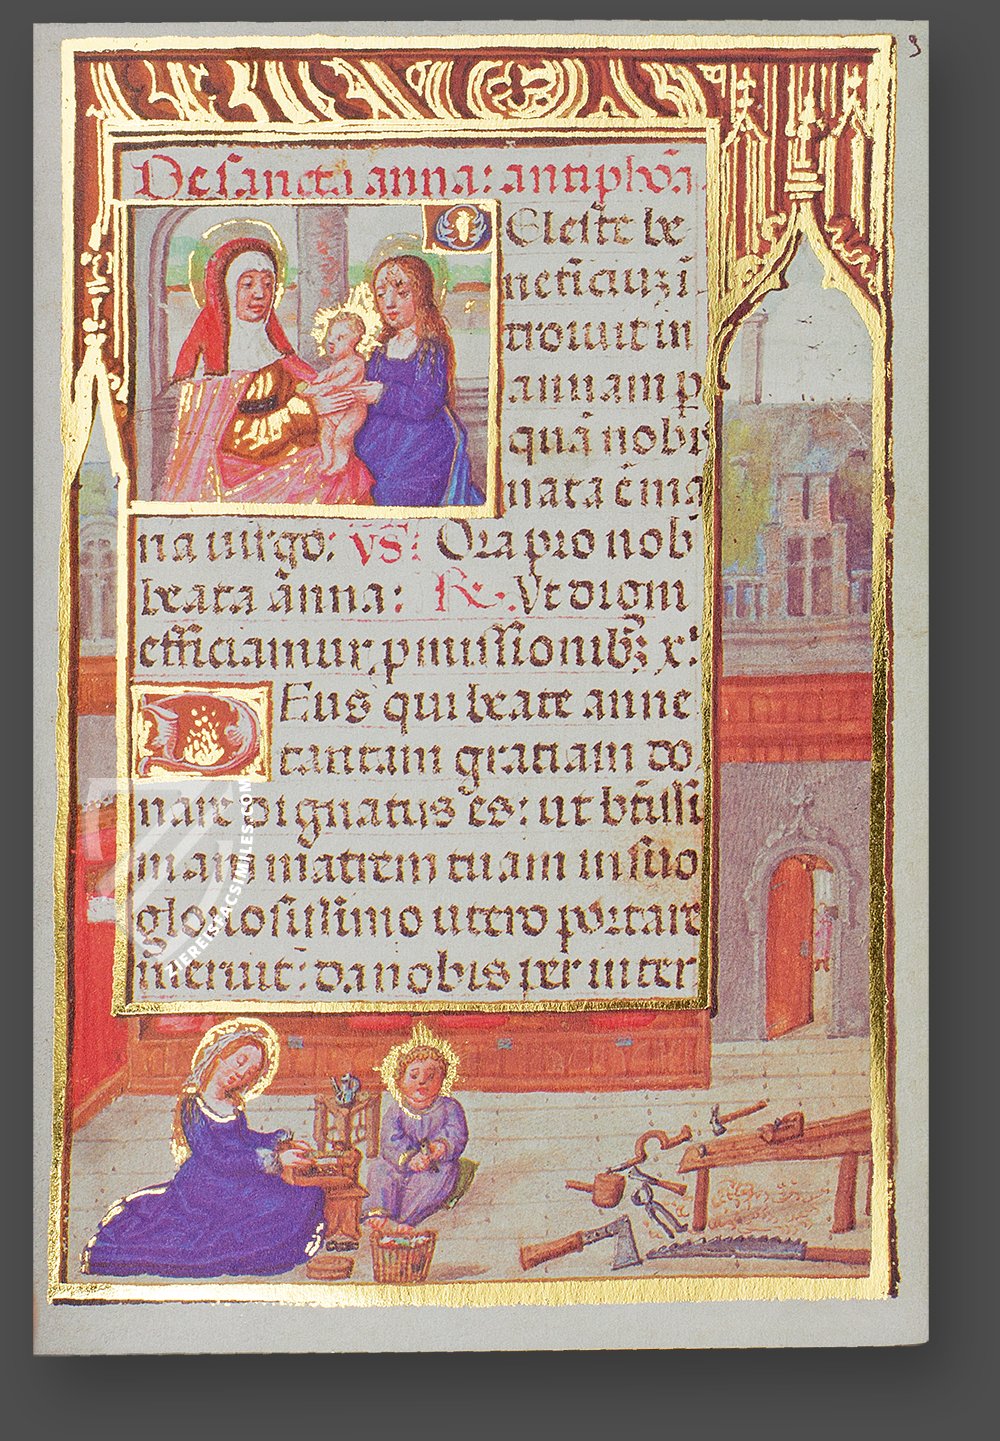 9
De sancta anna: antiphõa
Celeste be
neficiuz ī
troiuit in
annam p
quā nobis
nata ē ma
na uirgo: vs: Ora pro nob
beata ãnna: R. Vt digni
efficiamur pmissionibȝ x.
Deus qui beate anne
tantam gratiam do
nare dignatus es: ut btīssi
mam matrem tuam in suo
gloriosissimo utero portare
meruit: da nobis per inter
ZIEREISFACSIMILES.COM